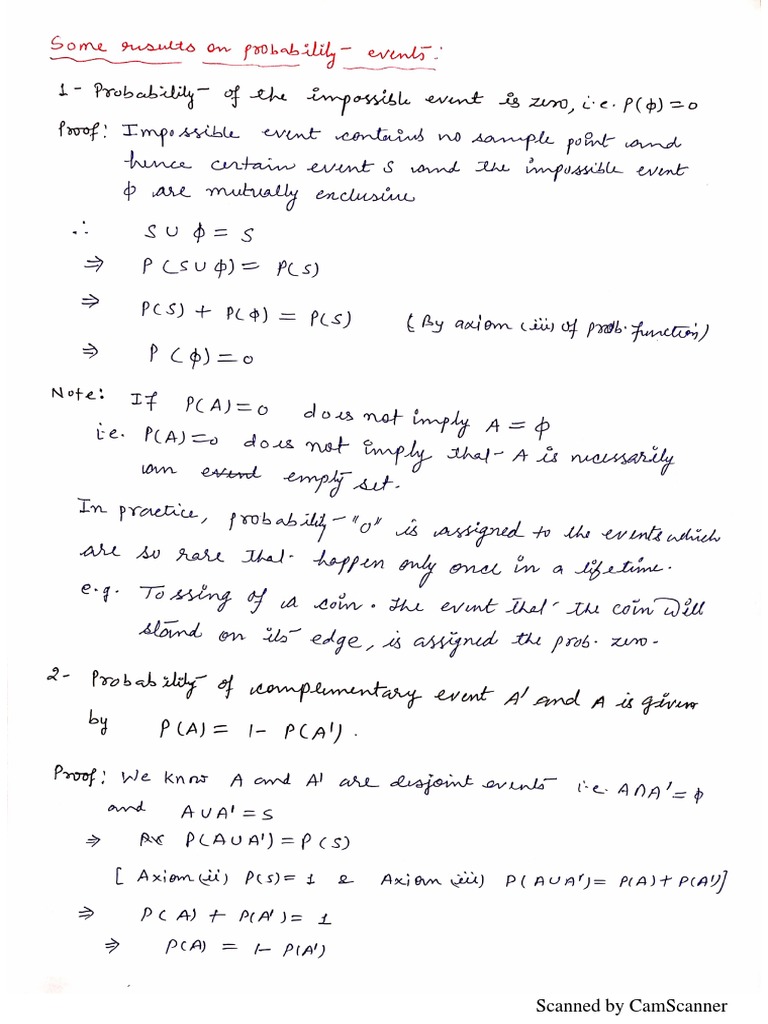 Some results on probability events:
1- Probability of the impossible event is zero, i.e. P(ϕ) = 0
Proof: Impossible event contains no sample point and
hence certain event S and the impossible event
ϕ are mutually exclusive
∴ S ∪ ϕ = S
⇒ P(S ∪ ϕ) = P(S)
⇒ P(S) + P(ϕ) = P(S) (By axiom (iii) of prob. function)
⇒ P(ϕ) = 0
Note: If P(A) = 0 does not imply A = ϕ
i.e. P(A) = 0 does not imply that A is necessarily
an event empty set.
In practice, probability "0" is assigned to the events which
are so rare that happen only once in a lifetime.
e.g. Tossing of a coin. The event that the coin will
stand on its edge, is assigned the prob. zero.
2- Probability of complementary event A' and A is given
by P(A) = 1- P(A').
Proof: We know A and A' are disjoint events i.e. A∩A' = ϕ
and A∪A' = S
⇒ P(A∪A') = P(S)
[ Axiom (ii) P(S) = 1 & Axiom (iii) P(A∪A') = P(A) + P(A')]
⇒ P(A) + P(A') = 1
⇒ P(A) = 1- P(A')
Scanned by CamScanner